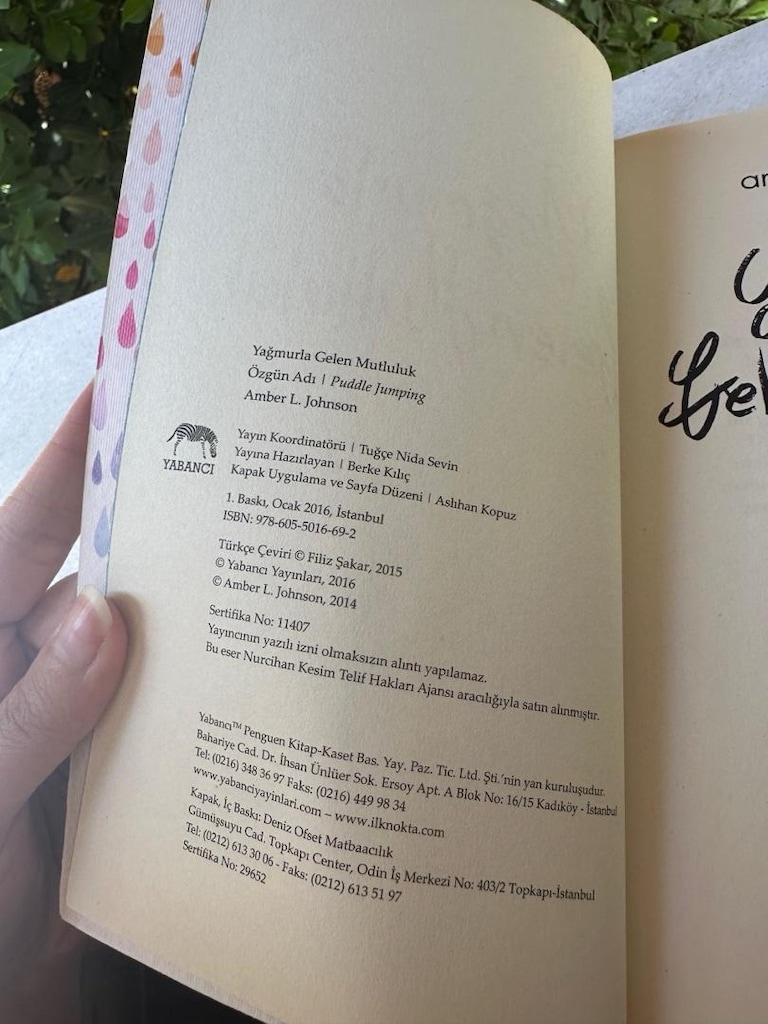 Yağmurla Gelen Mutluluk
Özgün Adı | Puddle Jumping
Amber L. Johnson
YABANCI
Yayın Koordinatörü | Tuğçe Nida Sevin
Yayına Hazırlayan | Berke Kılıç
Kapak Uygulama ve Sayfa Düzeni | Aslıhan Kopuz
1. Baskı, Ocak 2016, İstanbul
ISBN: 978-605-5016-69-2
Türkçe Çeviri © Filiz Şakar, 2015
© Yabancı Yayınları, 2016
© Amber L. Johnson, 2014
Sertifika No: 11407
Yayıncının yazılı izni olmaksızın alıntı yapılamaz.
Bu eser Nurcihan Kesim Telif Hakları Ajansı aracılığıyla satın alınmıştır.
Yabancı™ Penguen Kitap-Kaset Bas. Yay. Paz. Tic. Ltd. Şti.'nin yan kuruluşudur.
Bahariye Cad. Dr. İhsan Ünlüer Sok. Ersoy Apt. A Blok No: 16/15 Kadıköy - İstanbul
Tel: (0216) 348 36 97 Faks: (0216) 449 98 34
www.yabanciyayinlari.com – www.ilknokta.com
Kapak, İç Baskı: Deniz Ofset Matbaacılık
Gümüşsuyu Cad. Topkapı Center, Odin İş Merkezi No: 403/2 Topkapı-İstanbul
Tel: (0212) 613 30 06 - Faks: (0212) 613 51 97
Sertifika No: 29652